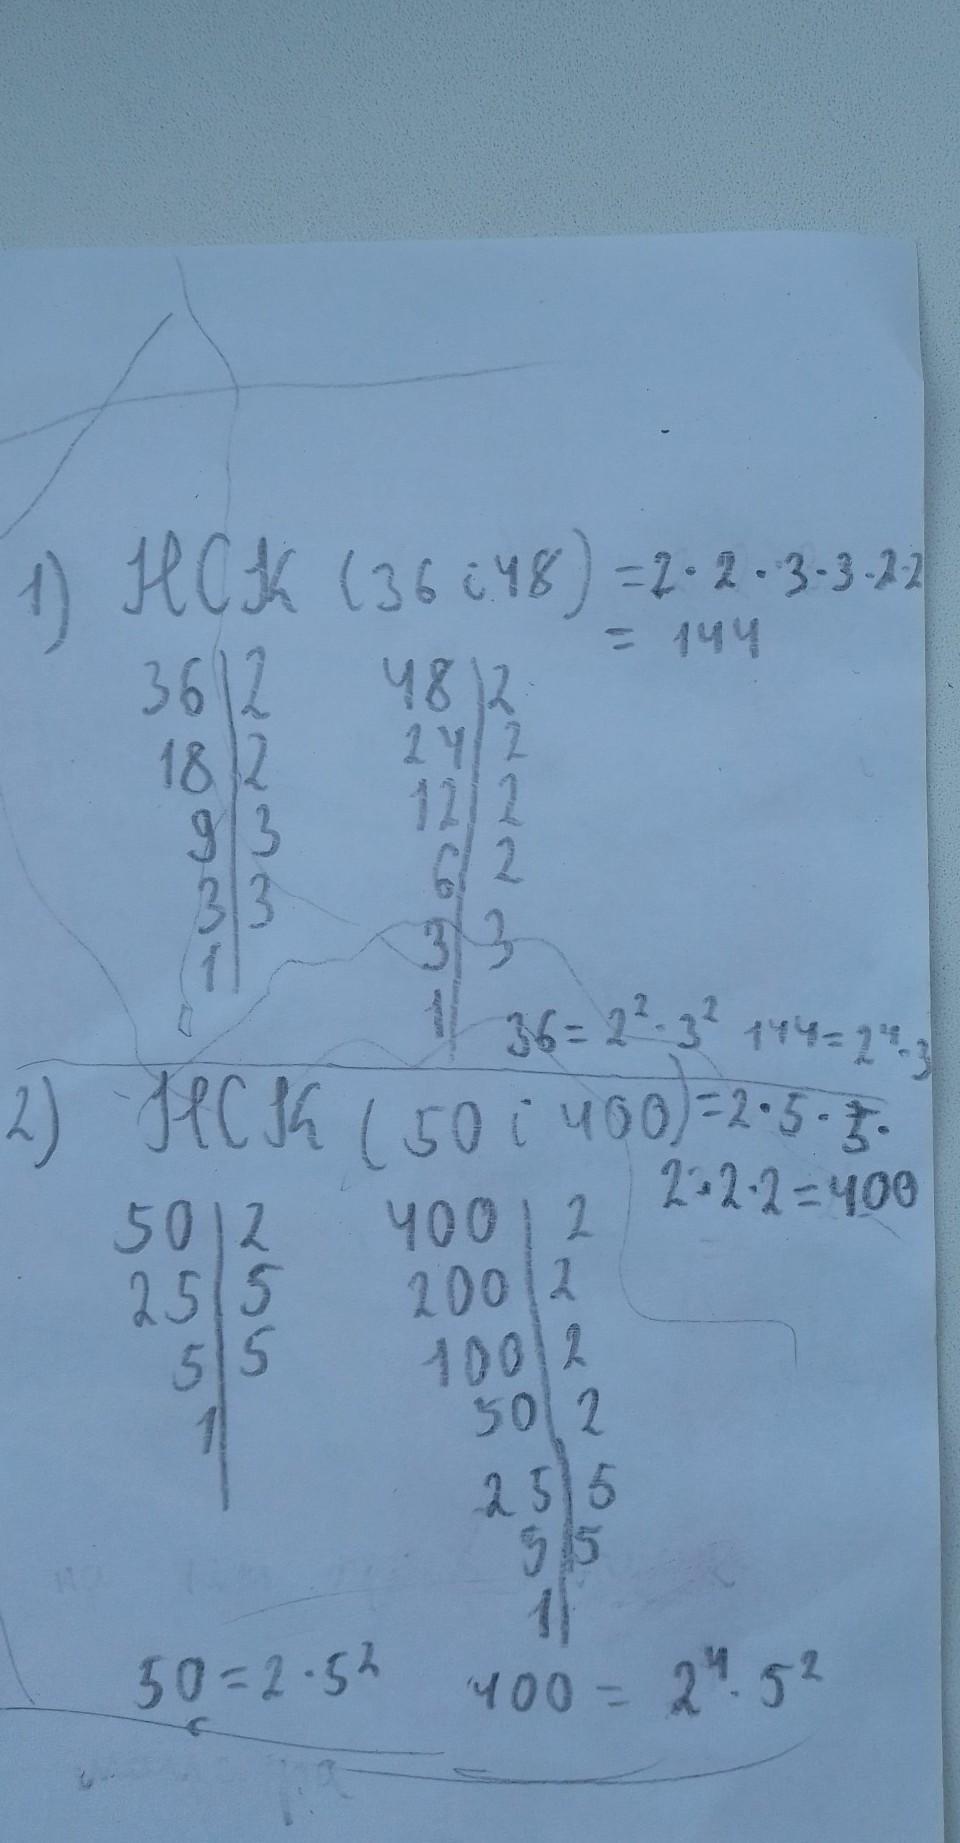 1) НСК (36 і 48) = 2 · 2 · 3 · 3 · 2 · 2
= 144
36 | 2 48 | 2
18 | 2 24 | 2
9 | 3 12 | 2
3 | 3 6 | 2
1 3 | 3
1
36 = 2² · 3² 144 = 2⁴ · 3
2) НСК (50 і 400) = 2 · 5 · 5 ·
2 · 2 · 2 = 400
50 | 2 400 | 2
25 | 5 200 | 2
5 | 5 100 | 2
1 50 | 2
25 | 5
5 | 5
1
50 = 2 · 5² 400 = 2⁴ · 5²